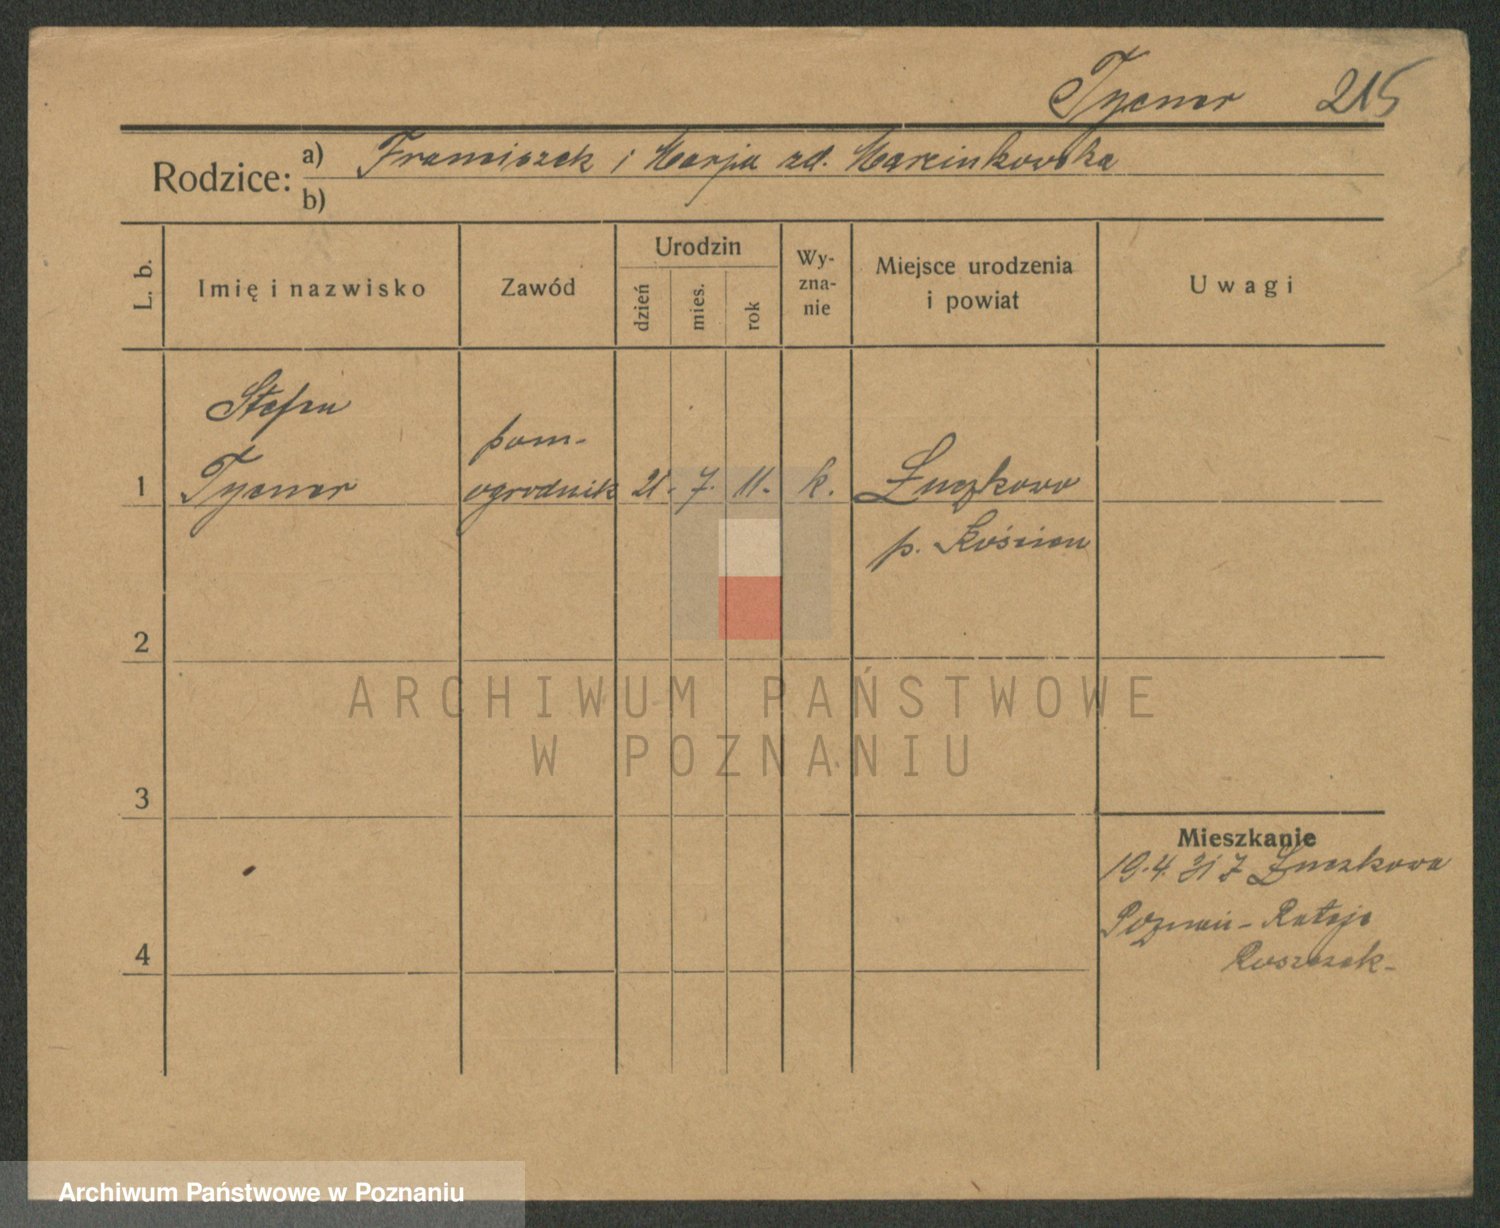 Tycner 215
Rodzice: a) Franciszek i Marja zd. Marcinkowska
b)
L. b. Imię i nazwisko Zawód Urodzin dzień mies. rok Wyznanie Miejsce urodzenia i powiat Uwagi
Stefan
pom-
1 Tycner ogrodnik 21. 7. 11. k. Łuczkowo
p. Kościan
2
ARCHIWUM PAŃSTWOWE
W POZNANIU
3
Mieszkanie
19.4.31 z Łuczkowa
Poznań - Rataje
4
Archiwum Państwowe w Poznaniu